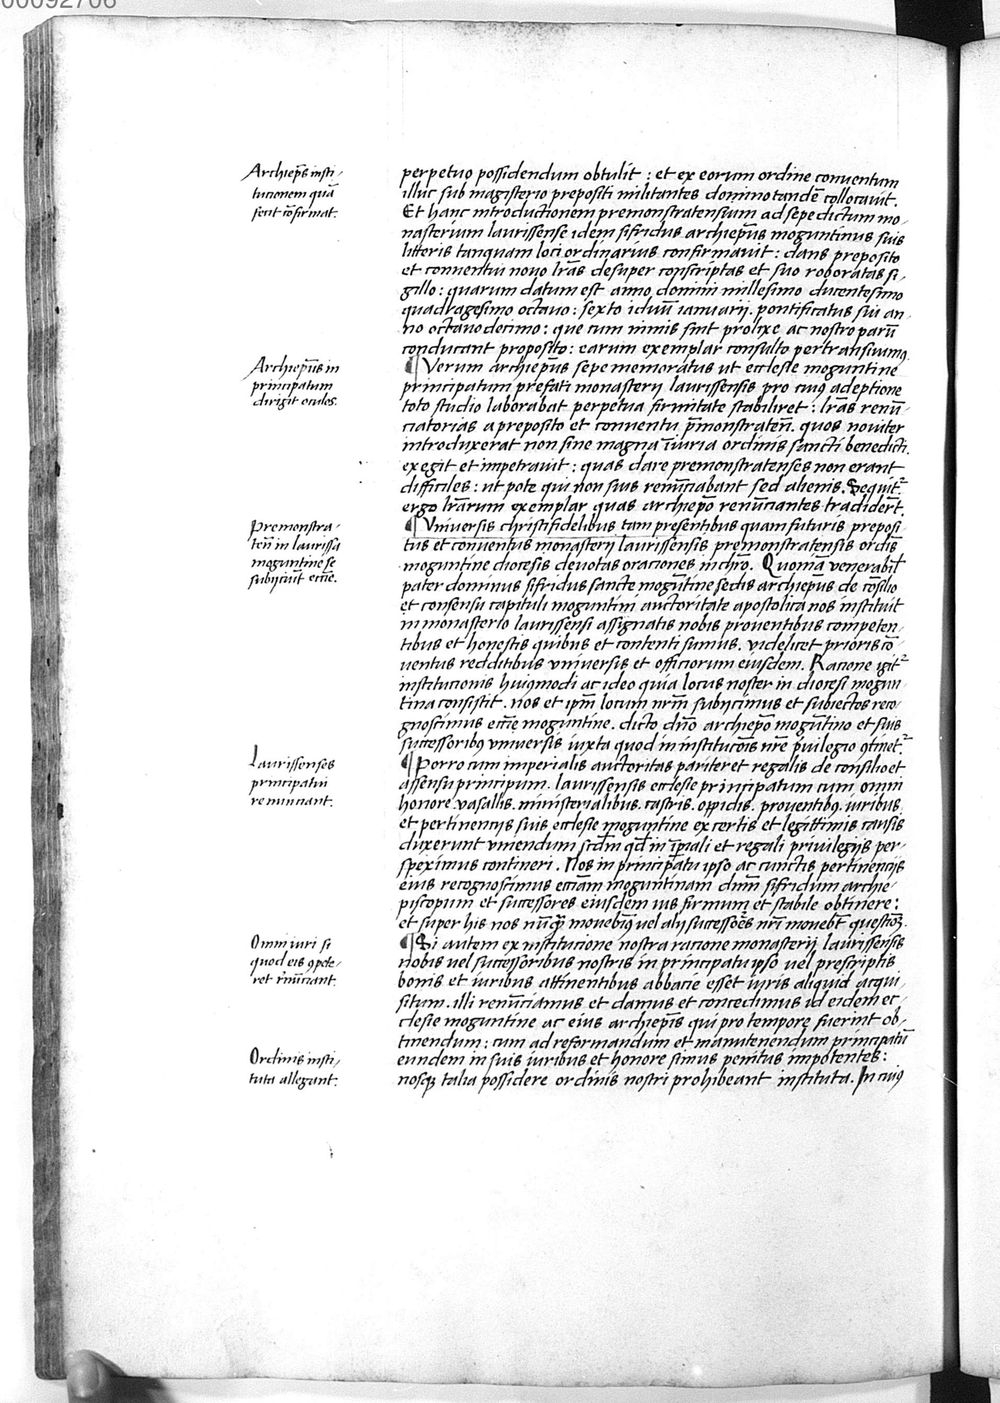 00092706
Archiep̄s insti-
tucionem quā
fecit cōfirmat.
perpetuo possidendum obtulit : et ex eorum ordine conuentum
illuc sub magisterio prepositi militantes domino tandē collocauit.
Et hanc introductionem premonstratensium ad sepedictum mo-
nasterium laurissense idem sifridus archiep̄us moguntinus suis
litteris tanquam loci ordinarius confirmauit : dans preposito
et conuentui nouo lr̄as desuper conscriptas et suo roboratas si-
gillo : quarum datum est anno domini millesimo ducentesimo
quadragesimo octauo : sexto iduū ianuarij. pontificatus sui an-
no octauodecimo : que cum nimis sint prolixe ac nostro parū
conducant proposito : earum exemplar consulto pertransiuimꝰ.
Archiep̄us in
principatum
dirigit oculos.
¶ Verum archiep̄us sepe memoratus ut ecclesie moguntine
principatum prefati monasterij laurissensis pro cuiꝰ adeptione
toto studio laborabat perpetua firmitate stabiliret : lr̄as renū-
ciatorias a preposito et conuentu p̄monstrateñ. quos nouiter
introduxerat non sine magna iniuria ordinis sancti benedicti.
exegit et impetrauit : quas dare premonstratenses non erant
difficiles : ut pote qui non suis renūciabant sed alienis. Sequit᷑
ergo lr̄arum exemplar quas archiep̄o renūciantes tradidert̄.
Premonstra-
teñ in laurissa
moguntine se
subijciūt eccīe.
¶ Vniuersis christifidelibus tam presentibus quam futuris preposi-
tus et conuentus monasterij laurissensis premonstratensis ordīs
moguntine diocesis deuotas oraciones in chr̄o. Quoniā venerabil̄
pater dominus sifridus sancte mogūtine sedis archiep̄us de cōsilio
et consensu capituli moguntini auctoritate apostolica nos instituit
in monasterio laurissensi assignatis nobis prouentibus competen-
tibus et honestis quibus et contenti sumus. videlicet prioris cō-
uentus redditibus vniuersis et officiorum eiusdem. Racione igit᷑
institucionis huiꝰmodi ac ideo quia locus noster in diocesi mogun-
tina consistit. nos et ip̄m locum nr̄m subijcimus et subiectos reco-
gnoscimus eccīe moguntine. dicto dn̄o archiep̄o mogūtino et suis
successoribꝰ vniuersis iuxta quod in institucōis nr̄e p̄uilegio ꝯtinet᷑.
Laurissenses
principatui
renunciant.
¶ Porro cum imperialis auctoritas pariter et regalis de consilio et
assensu principum. laurissensis ecclesie principatum cum omni
honore. vasallis. ministerialibus. castris. oppidis. prouentibꝰ. iuribus
et pertinencijs suis ecclesie moguntine ex certis et legittimis causis
duxerunt vniendum scd̄m qd̄ in īp̄iali et regali priuilegijs per-
speximus contineri. Nos in principatu ipso ac cunctis pertinencijs
eius recognoscimus ecciam moguntinam dn̄m sifridum archie-
piscopum et successores eiusdem ius firmum et stabile obtinere :
et super his nos nūqꝫ mouebimꝰ uel alij successōes nr̄i mouebt̄ questiōꝫ.
Omni iuri si
quod eis ꝯpete-
ret rēnūciant.
¶ Si autem ex institucione nostra racione monasterij laurissensis
nobis uel successoribus nostris in principatu ipso uel prescriptis
bonis et iuribus attinentibus abbacie esset iuris aliquid acqui-
situm. illi renūciamus et damus et concedimus id eidem ec-
clesie moguntine ac eius archiep̄is qui pro tempore fuerint ob-
tinendum : cum ad reformandum et manutenendum principatū
Ordinis insti-
tuta allegant.
eundem in suis iuribus et honore simus penitus impotentes :
nosqꝫ talia possidere ordinis nostri prohibeant instituta. In cuiꝰ